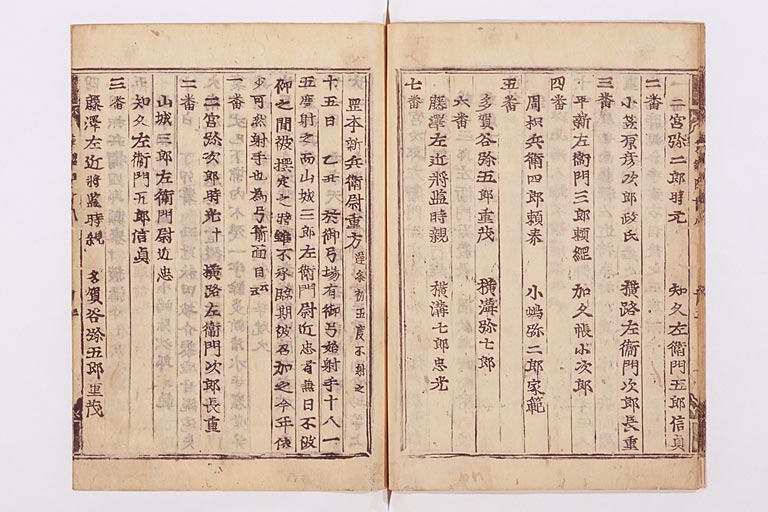 二宮弥二郎時元　知久左衛門五郎信貞
二番
小笠原彦次郎政氏　横路左衛門次郎長重
三番
平新左衛門三郎頼綱　加久帳小次郎
四番
周枳兵衛四郎頼泰　小嶋弥二郎家範
五番
多賀谷弥五郎重茂　横溝弥七郎
六番
藤澤左近將監時親　横溝七郎忠光
七番
本新兵衛尉重方
十五日　乙丑　於御弓場有御弓始射手十八人
五度射之而山城三郎左衛門尉近忠者無日不被
御之間被撰定之時雖不承臨期被召加之今年
少可然射手也為弓箭面目云云
一番
二宮弥次郎時光　横路左衛門次郎長重
二番
山城三郎左衛門尉近忠
知久左衛門五郎信貞
三番
藤澤左近將監時親　多賀谷弥五郎重茂